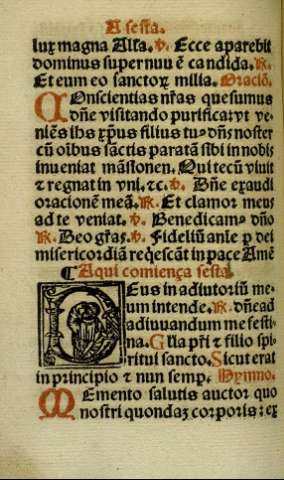 A sesta.
lux magna Alła. ℣. Ecce aparebit
dominus super nuuē candida. ℟.
Et cum eo sanctoꝝ milia. Oraciō.
COnscientias nr̄as quesumus
dn̄e visitando purifica: vt ve-
niēs ihs xp̄us filius tu⁹ dn̄s noster
cū oībus sāctis paratā sibi in nobis
inueniat māsionem. Qui tecū viuit
⁊ regnat in vni. ⁊c. ℣. Dn̄e exaudi
oracionē meā. ℟. Et clamor meus
ad te veniat. ℣. Benedicam⁹ dn̄o
℟. Deo gr̄as. ℣. Fideliū anīe ꝑ dei
misericordiā reqescāt in pace Amē
¶ Aqui comiença sesta.
DEus in adiutoriū me-
um intende. ℟. dn̄e ad
adiuuandum me festi-
na. Gl̄a pr̄i ⁊ filio spi-
ritui sancto. Sicut erat
in principio ⁊ nun semp. Hymno.
MEmento salutis auctor quo
nostri quondaʒ corporis: ex